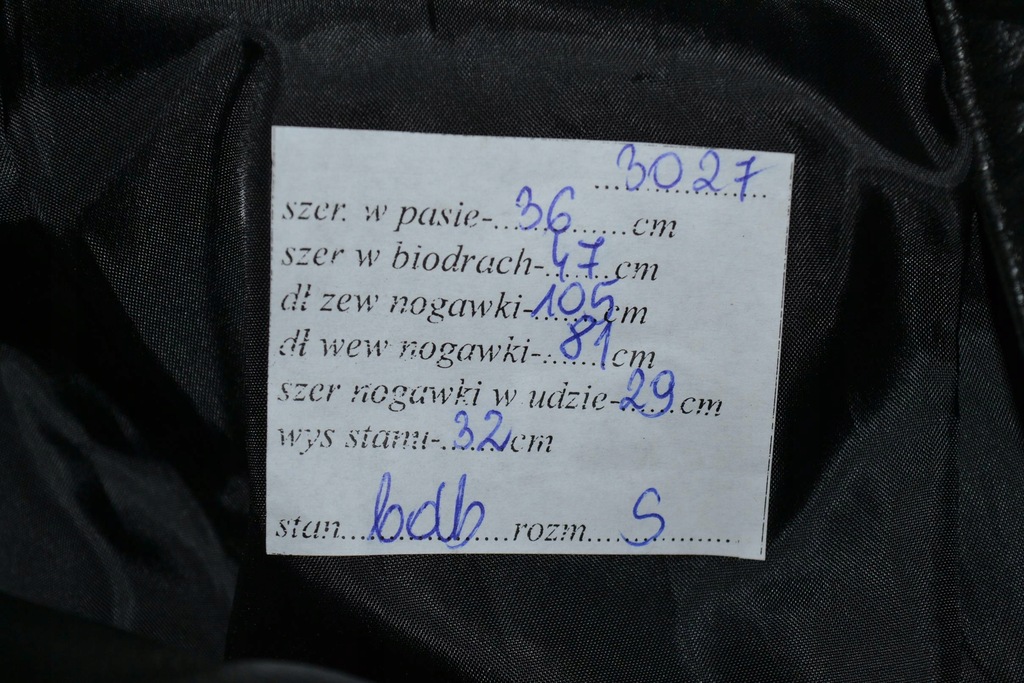 ...3027...
szer. w pasie-...36......cm
szer w biodrach-...47...cm
dł zew nogawki-105cm
dł wew nogawki-...81cm
szer nogawki w udzie-29cm
wys stanu-.32cm
stan...bdb...rozm...S...